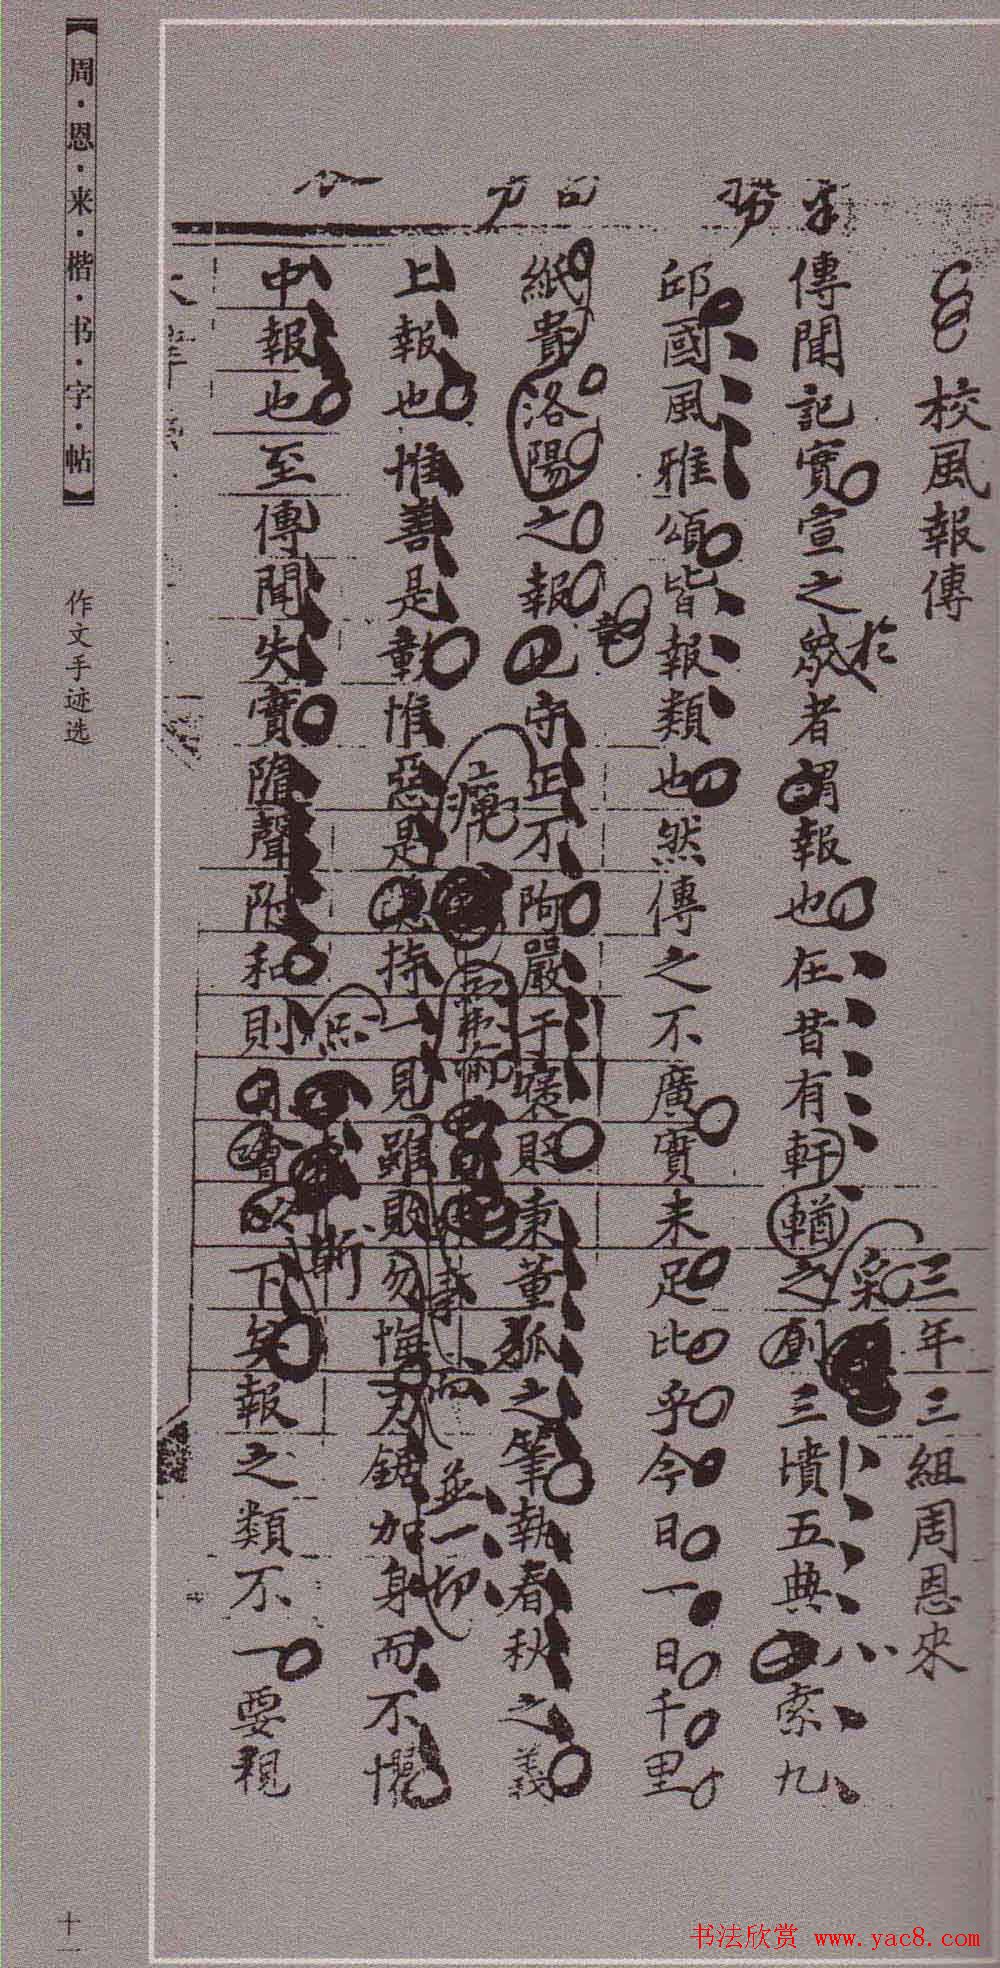 校風報傳
三年三組周恩來
傳聞記實宣之眾者謂報也在昔有軒輶之創三墳五典索九
於
邱國風雅頌皆報類也然傳之不廣實未足比乎今日一日千里
紙貴洛陽之報也守正不阿嚴于褒貶秉董狐之筆執春秋之義
上報也惟善是彰惟惡是癉持一見雖則勿悔刀鋸加身而不懼
並一切
中報也至傳聞失實隨聲附和則斯下矣報之類不一要視
周·恩·来·楷·书·字·帖
作文手迹选
十一
书法欣赏 www.yac8.com